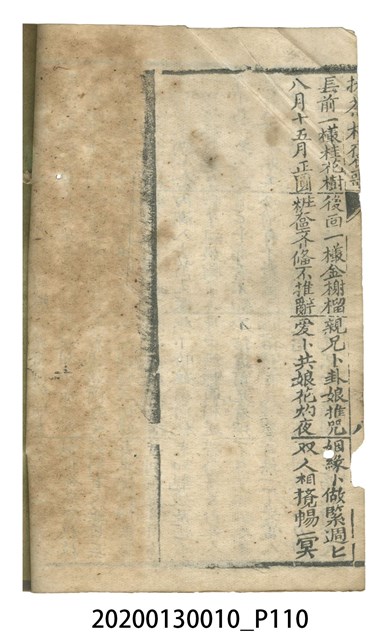 長前一欉桂花樹後面一欉金榭榴親兄卜卦娘推咒姻緣卜做緊過匕
八月十五月正圓粧奩齐俻不推辭愛卜共娘花灼夜双人相挽暢一冥
20200130010_P110